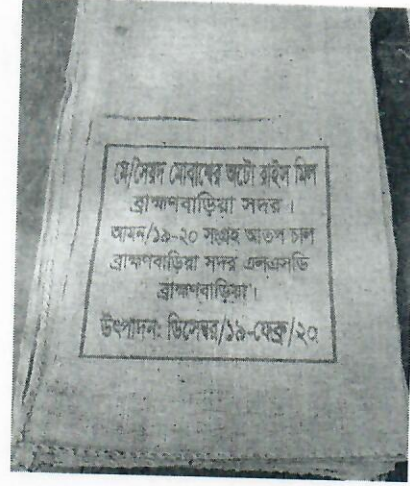 মে/সৈয়দ মোবাশ্বের অটো রাইস মিল
ব্রাহ্মণবাড়িয়া সদর।
আমন/১৯-২০ সংগ্রহ আতপ চাল
ব্রাহ্মণবাড়িয়া সদর এলএসডি
ব্রাহ্মণবাড়িয়া।
উৎপাদন: ডিসেম্বর/১৯-ফেব্রু/২০